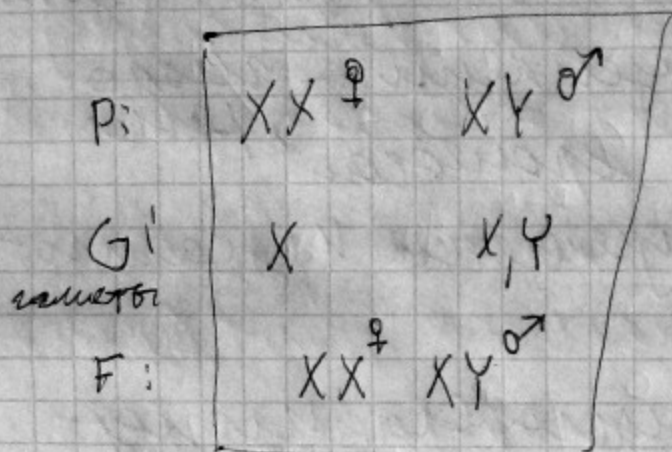 P: XX ♀ XY ♂
G: X X, Y
гаметы
F: XX ♀ XY ♂